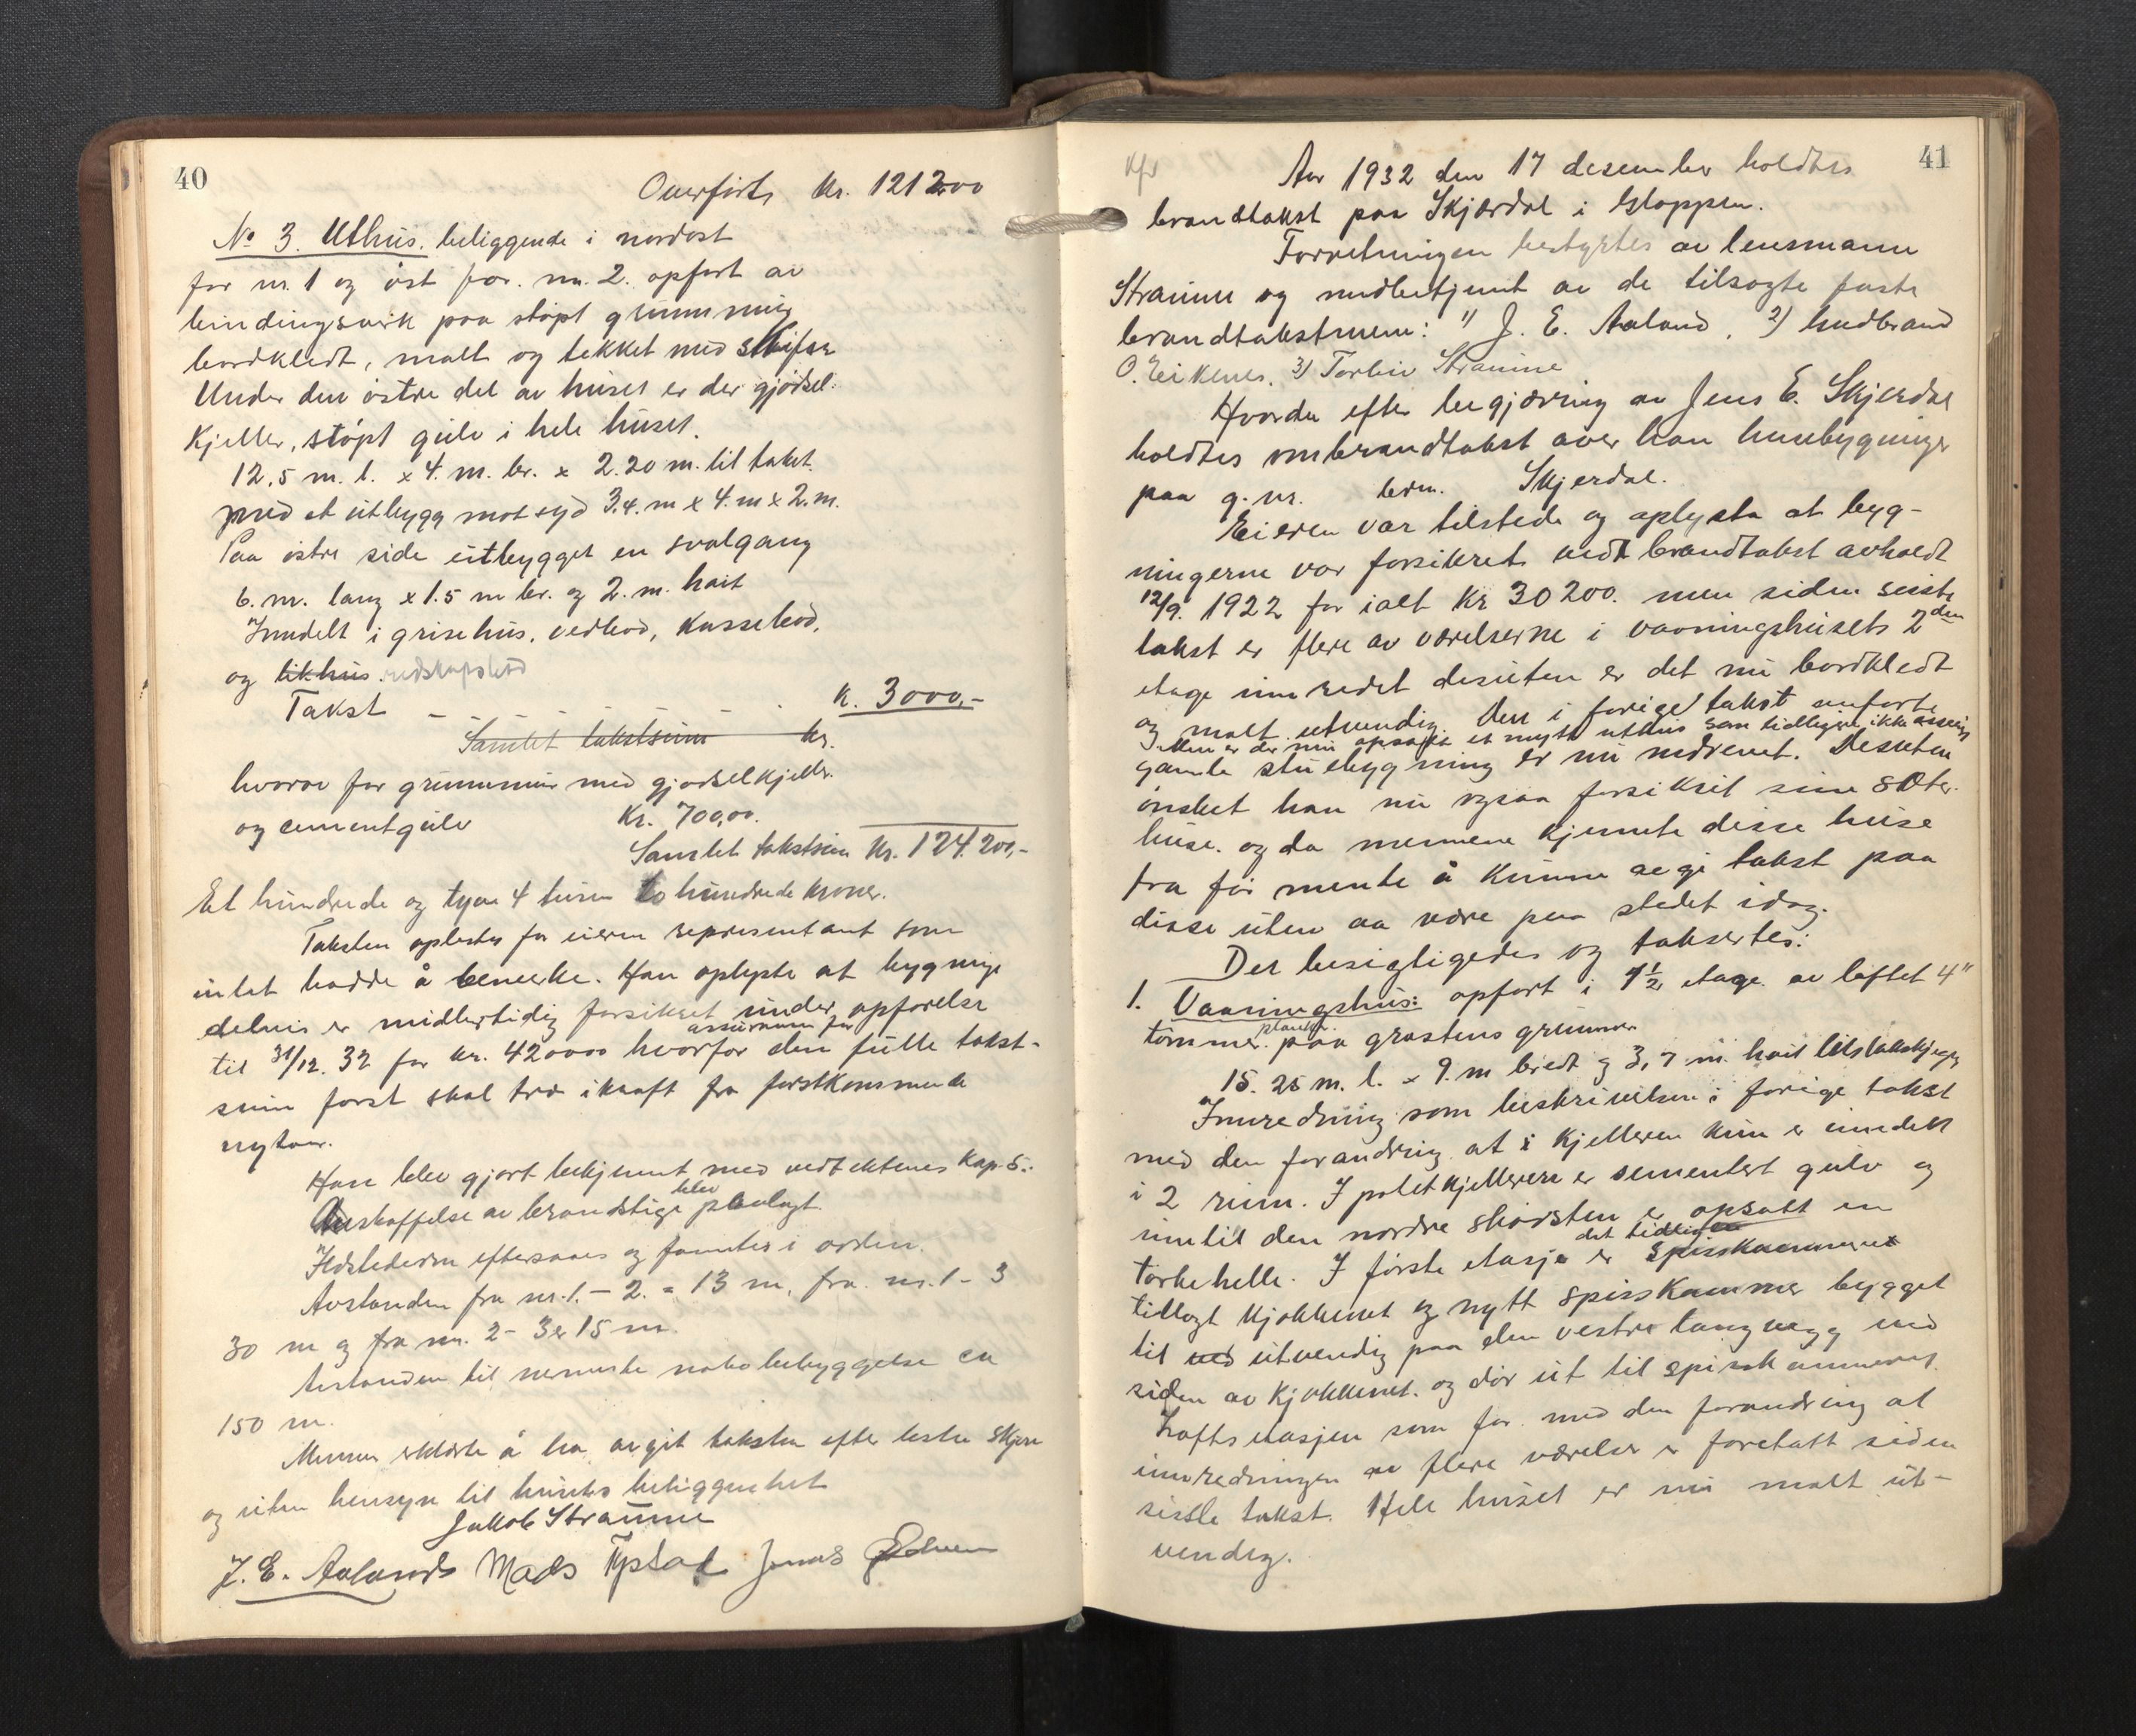 40
Overførts kr. 121200
No 3. Uthus. beliggende i nordost
for nr. 1 og øst for. nr. 2. opført av
bindingsverk paa støpt grunnmur
bordkledt, malt og tekket med skifer
Under den østre del av huset er der gjødsel-
kjeller, støpt gulv i hele huset.
12,5 m. l. x 4. m. br. x 2.20 m. til taket.
med et utbygg mot syd 3.4. m x 4. m x 2. m.
Paa østre side utbygget en svalgang
6. m. lang x 1.5 m br. og 2. m. høit
Inndelt i grisehus, vedbod,
og likhus. redskapsbod
Takst - - - - k. 3000,-
Samlet takstsum kr.
hvorav for grunnmur med gjødselkjeller.
og cementgulv Kr. 700,00.
Samlet takstsum kr. 124.200,-
Et hundrede og tyve 4 tusen to hundrede kroner.
Taksten oplestes for eieren representant som
intet hadde å bemerke. Han oplyste at bygninge
delvis er midlertidig forsikret under opførelse
assuranse for
til 31/12. 32 for kr. 42000 hvorfor den fulle takst-
sum først skal tre i kraft fra førstkommende
nytaar.
Han blev gjort bekjennt med vedtektenes Kap. 5.
blev
Anskaffelse av brandstige paalagt.
Ildstederne eftersaaes og fanntes i orden.
Avstanden fra nr. 1. - 2. = 13 m, fra nr. 1 - 3
30 m og fra nr. 2 - 3 er 15 m.
Avstanden til nermeste nabobebyggelse er
150 m.
Mennene erklærte å ha avgit taksten efter beste skjøn
og uten hensyn til husets beliggenhet
Jakob Straume
J. E. Aaland Mads Tystad Jonas
41
Aar 1932 den 17 desember holdtes
brandtakst paa Skjærdal i Gloppen.
Forretningen bestyrtes av lensmann
Straume og medbetjent av de tilsagte faste
brandtakstmenn: 1) J. E. Aaland, 2) Gudbrand
O. Eikenes, 3) Torleiv Straume
Hvorda efter begjæring av Jens E. Skjerdal
holdtes ombrandtakst over han husebygninger
paa g. nr. brn. Skjerdal.
Eieren var tilstede og oplyste at byg-
ningerne var forsikret ved brandtakst avholdt
12/9. 1922 for ialt kr 30200. men siden siste
takst er flere av værelserne i vaaningshusets 2den
etage innredet desuten er det nu bordkledt
og malt utvendig. Den i forige takst anførte
Men er der nu opsatt et nytt uthus som tidligere ikke
gamle stuebygning er nu nedrevet. Desuten
ønsket han nu ogsaa forsikret sine sæter-
huse. og da mennene kjennte disse huse
fra før mente å kunne avgi takst paa
disse uten aa være paa stedet idag.
Der besigtigedes og taksertes:
1. Vaaningshus: opført i 1½ etage av løftet 4"
planker.
tømmer. paa graastens grunnmur.
15. 25 m. l. x 9. m bredt og 3,7 m. høit til takskjegg
Innredning som beskrivelsen i forige takst
med den forandring at i kjelleren kun er inndelt
i 2 rum. I potetkjelleren er sementert gulv og
inntil den nordre skorsten er opsatt en
det tidligere
tørkehelle. I første etasje er spisskammeret
tillagt kjøkkenet og nytt spisskammer bygget
til ved utvendig paa den vestre langvegg ved
siden av kjøkkenet. og dør ut til spisskammeret.
Loftsetasjen som før med den forandring at
innredningen av flere værelser er foretatt siden
sistle takst. Hele huset er nu malt ut-
vendig.